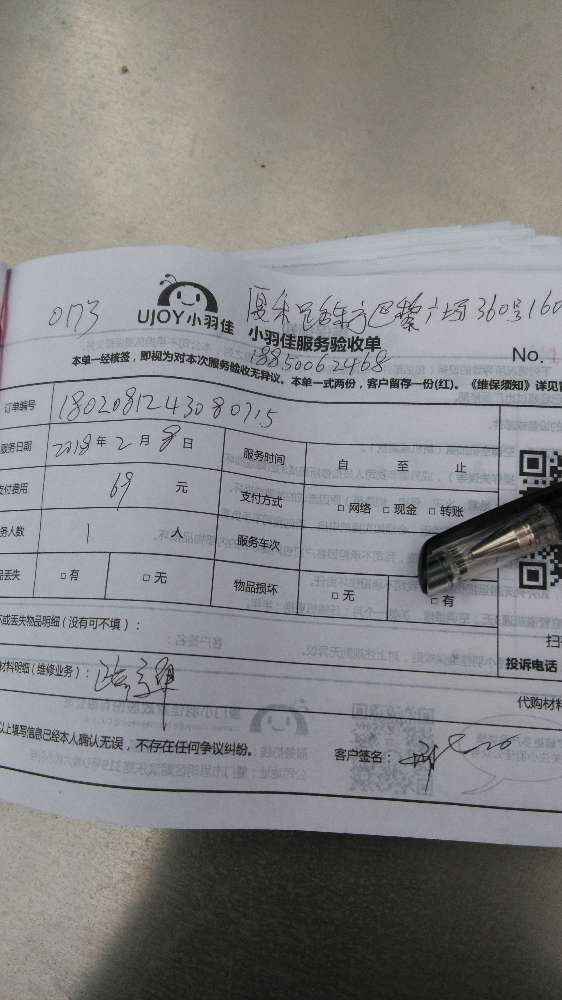 0173
UJOY 小羽佳
东方巴黎广场360号160
小羽佳服务验收单
No.
18850062468
本单一经核签，即视为对本次服务验收无异议。本单一式两份，客户留存一份(红)。《维保须知》详见
订单编号 1802081243080715
服务日期 2018年2月8日 服务时间 自 至 止
支付费用 69 元 支付方式 □网络 □现金 □转账
务人数 1 人 服务车次
品丢失 □有 □无 物品损坏 □无 □有
坏或丢失物品明细（没有可不填）：
投诉电话
材料明细（维修业务）：
代购材料
以上填写信息已经本人确认无误，不存在任何争议纠纷。 客户签名：